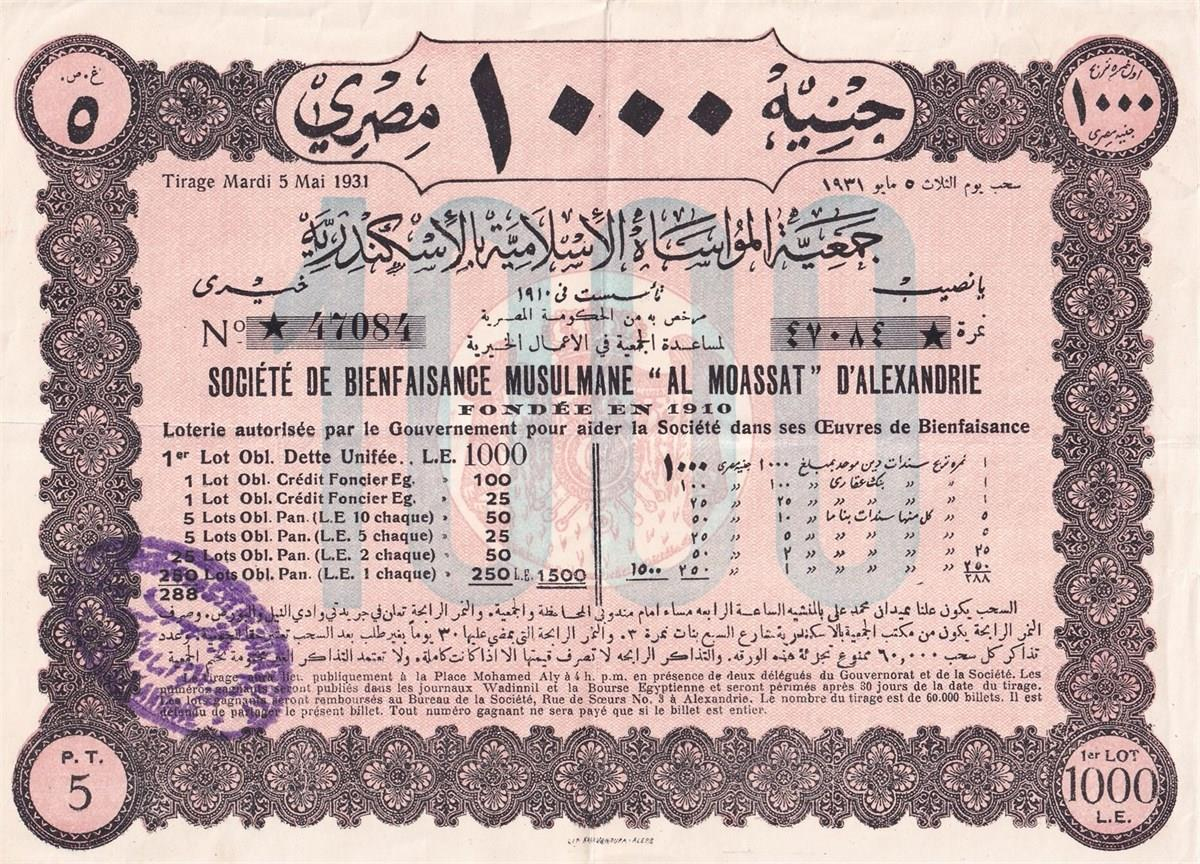 غ.ص.
٥
جنيه ١٠٠٠ مصري
اول نمره تربح
١٠٠٠
جنيه مصري
Tirage Mardi 5 Mai 1931
سحب يوم الثلاث ٥ مايو ١٩٣١
جمعية المؤاساة الأسلامية بالأسكندرية
يانصيب
خيرى
تأسست فى ١٩١٠
مرخص به من الحكومة المصرية
لمساعدة الجمعية في الاعمال الخيرية
No ★ 47084
نمرة ★ ٤٧٠٨٤
SOCIÉTÉ DE BIENFAISANCE MUSULMANE “AL MOASSAT” D'ALEXANDRIE
FONDÉE EN 1910
Loterie autorisée par le Gouvernement pour aider la Société dans ses Œuvres de Bienfaisance
1er Lot Obl. Dette Unifée.. L.E. 1000
1 Lot Obl. Crédit Foncier Eg. » 100
1 Lot Obl. Crédit Foncier Eg. » 25
5 Lots Obl. Pan. (L.E 10 chaque) » 50
5 Lots Obl. Pan. (L.E. 5 chaque) » 25
25 Lots Obl. Pan. (L.E. 2 chaque) » 50
250 Lots Obl. Pan. (L.E. 1 chaque) » 250 L.E. 1500
288
١ نمره تربح سندات دين موحد بمبلغ ١٠٠٠ جنيه مصرى ١٠٠٠
١ » » بنك عقارى » ١٠٠ » ١٠٠
١ » » » » ٢٥ » ٢٥
٥ » كل منها سندات بناما ١٠ » ٥٠
٥ » » » » ٥ » ٢٥
٢٥ » » » » ٢ » ٥٠
٢٥٠ » » » » ١ » ٢٥٠ ١٥٠٠
٢٨٨
السحب يكون علنا بميدان محمد على بالمنشيه الساعة الرابعه مساء امام مندوبى المحافظة والجمعية. والنمر الرابحة تعلن في جريدتي وادي النيل والبورص. وصرف
النمر الرابحة يكون من مكتب الجمعية بالاسكندرية بشارع السبع بنات نمرة ٣. والنمر الرابحة التي يمضي عليها ٣٠ يوماً بغير طلب بعد السحب تعتبر وعدد
تذاكر كل سحب ٦٠,٠٠٠ ممنوع تجزئة هذه الورقه. والتذاكر الرابحه لا تصرف قيمتها الا اذا كانت كاملة. ولا تعتمد التذاكر الغير مختومة بختم الجمعية
Le tirage aura lieu publiquement à la Place Mohamed Aly à 4 h. p.m. en présence de deux délégués du Gouvernorat et de la Société. Les
numéros gagnants seront publiés dans les journaux Wadinnil et la Bourse Egyptienne et seront périmés après 30 jours de la date du tirage.
Les lots gagnants seront remboursés au Bureau de la Société, Rue de Sœurs No. 3 à Alexandrie. Le nombre du tirage est de 60.000 billets. Il est
défendu de partager le présent billet. Tout numéro gagnant ne sera payé que si le billet est entier.
P.T.
5
1er LOT
1000
L.E.